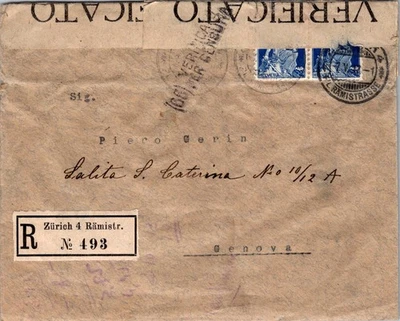 VERIFICATO VERIFICATO
VERIFICA
PER CENSURA
RÄMISTRASSE
Sig.
Piero Gerin
Salita S. Caterina No 10/12 A
R Zürich 4 Rämistr.
№ 493
Genova